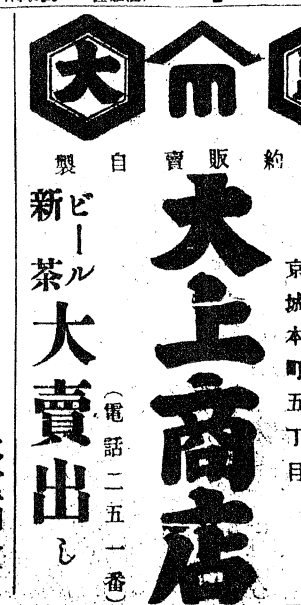 大
約販賣自製
京城本町五丁目
大上商店
(電話二五一番)
ビール
新茶
大賣出し